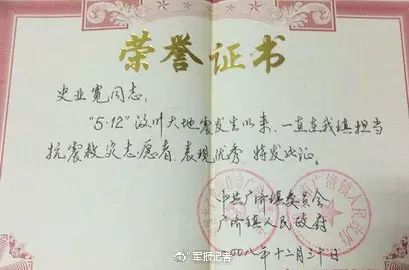 荣誉证书
史业宽同志:
"5·12"汶川大地震发生以来,一直在我镇担当
抗震救灾志愿者,表现优秀,特发此证。
中共广济镇委员会
广济镇人民政府
二〇〇八年十二月三十日
军报记者